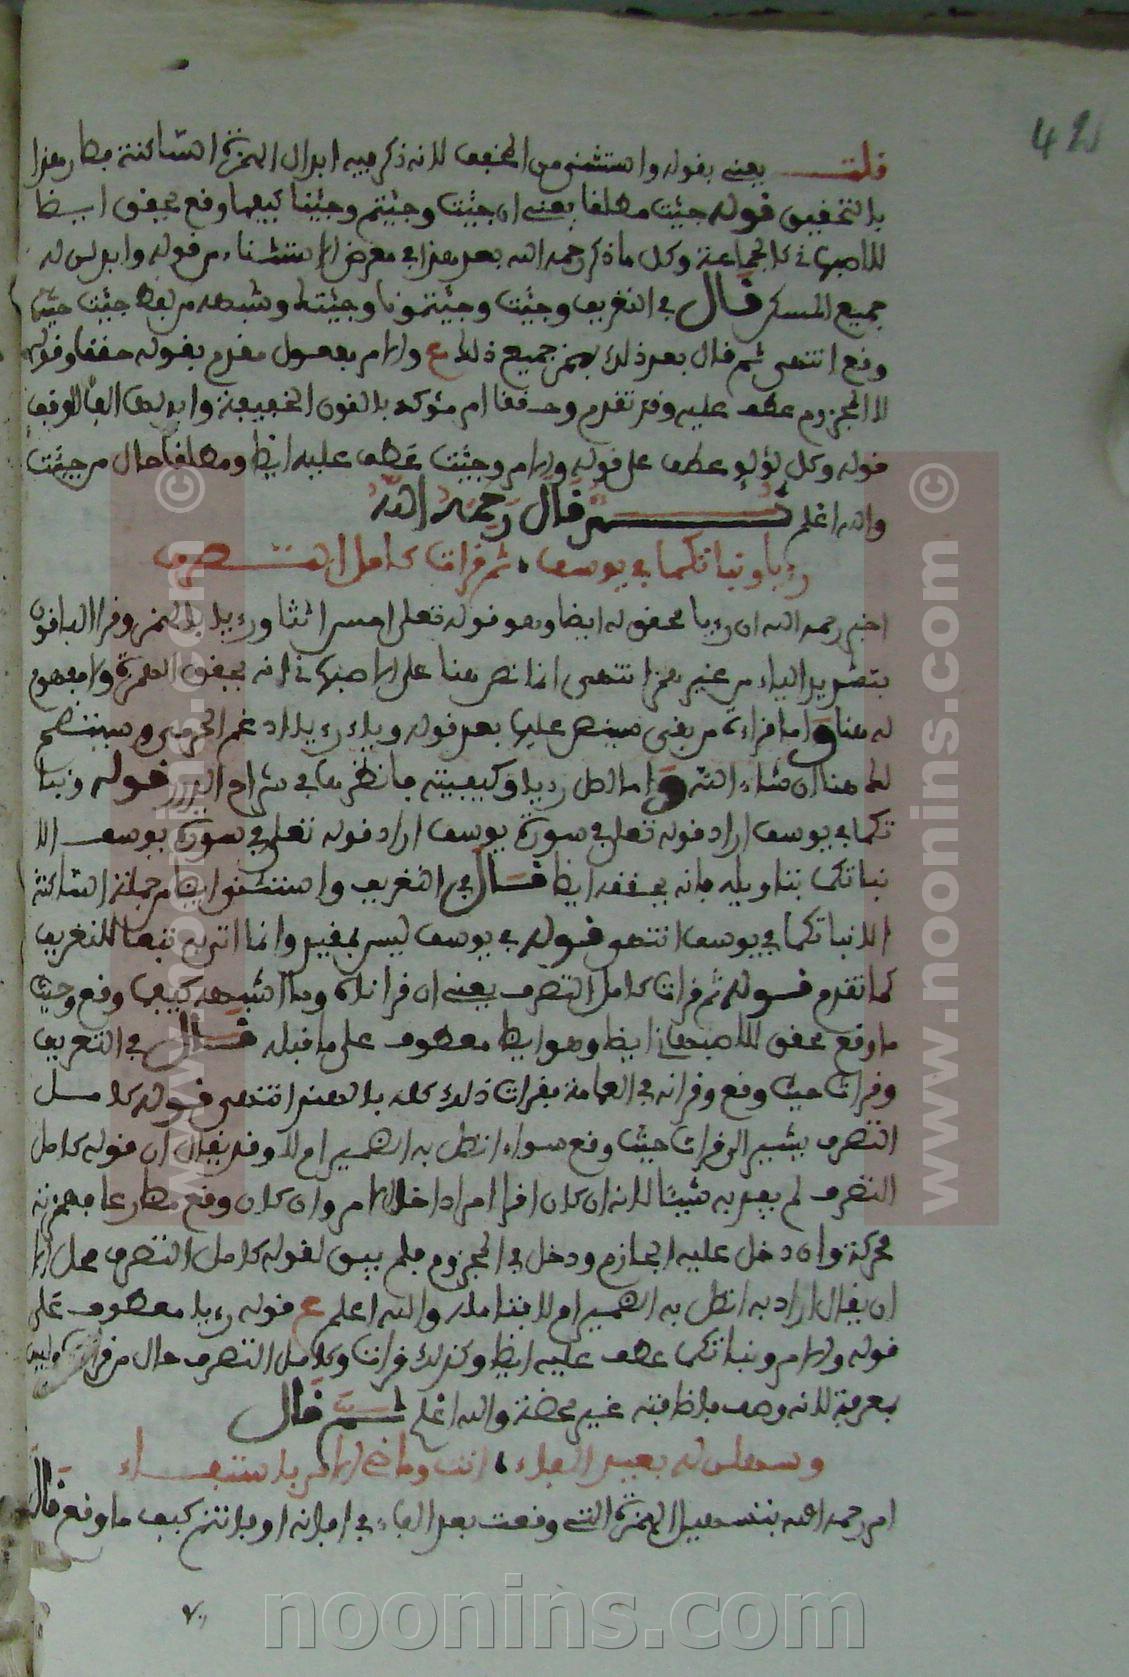 42
قلت يعني بقوله واستثنى من المخفف لانه ذكر فيه ابدال الهمزة الساكنة فصار هذا
بالتحقيق قوله جئت مطلقا يعني ان جئت وجئتم وجئنا كيفما وقع يحقق ايضا
للاصبهاني كالجماعة وكل ما ذكر رحمه الله بعد هذا في معرض الاستثناء من قوله وابدلن له
جميع المسكن قال في التعريف وجئت وجئتمونا وجئتك وشبهه من لفظ جئت حيث
وقع انتهى ثم قال بعد ذلك بهمز جميع ذلك ع والامر مفعول مقدم بقوله حققا وقوله
لا المجزوم عطف عليه وقد تقدم وحققا امر مؤكد بالنون الخفيفة وابدلها الفا للوقف
قوله وكل لؤلؤ عطف على قوله والامر وجئت عطف عليه ايضا ومطلقا حال من جئت
والله اعلم ثم قال رحمه الله
رءيا ونباتكما في يوسف ، ثم قرات كامل التصرف
اخبر رحمه الله ان رءيا يحقق له ايضا وهو قوله تعلى احسن اثثا ورءيا بالهمز وقرا الباقون
بتشديد الياء من غير همز انتهى انما نص هنا على الاصبهاني انه يحقق الهمزة ولا مفهوم
له هنا واما قراءة من بقي سينص عليها بعد قوله وياء رءيا ادغم الحرمي وسيتضح
لك هنا ان شاء الله واما اصل رءيا وكيفيته فانظرها في شراح الدرر قوله ونبا
تكما في يوسف اراد قوله تعلى في سورة يوسف اراد قوله تعلى في سورة يوسف الا
نباتكما بتاويله فانه يحققه ايضا قال في التعريف واستثنوا ايضا من جملة الساكنة
الا نباتكما في يوسف انتهى قوله في يوسف ليس بمقيد وانما اتى به تبعا للتعريف
كما تقدم قوله ثم قرات كامل التصرف يعني ان قراناه وما اشبهه كيف وقع وحيث
ما وقع يحقق للاصبهاني ايضا وهو ايضا معطوف على ما قبله قال في التعريف
وقرات حيث وقع وقرانه في العامة بقرات ذلك كله بالهمز انتهى قوله كامل
التصرف يشير الى قرات حيث وقع سواء اتصل به الضمير ام لا وقد يقال ان قوله كامل
التصرف لم يفد به شيئا لانه ان كان اقرا امرا داخل الامر وان كان وقع مضارعا فهمزته
محركة وان دخل عليه الجازم ودخل في المجزوم فلم يبق لقوله كامل التصرف محل الا
ان يقال اراد به اتصل به الضمير ام لا فتامله والله اعلم ع قوله رءيا معطوف على
قوله والامر ونباتكما عطف عليه ايضا وكذلك قرات وكامل التصرف حال من قرات وليس
بمعرفة لانه وصف فاضافته غير محضة والله اعلم ثم قال
وسهلن له بعيد الفاء ، انت وما في الامر باستيفاء
امر رحمه الله بتسهيل الهمزة التي وقعت بعد الفاء في افانه او فانتن كيف ما وقع قال